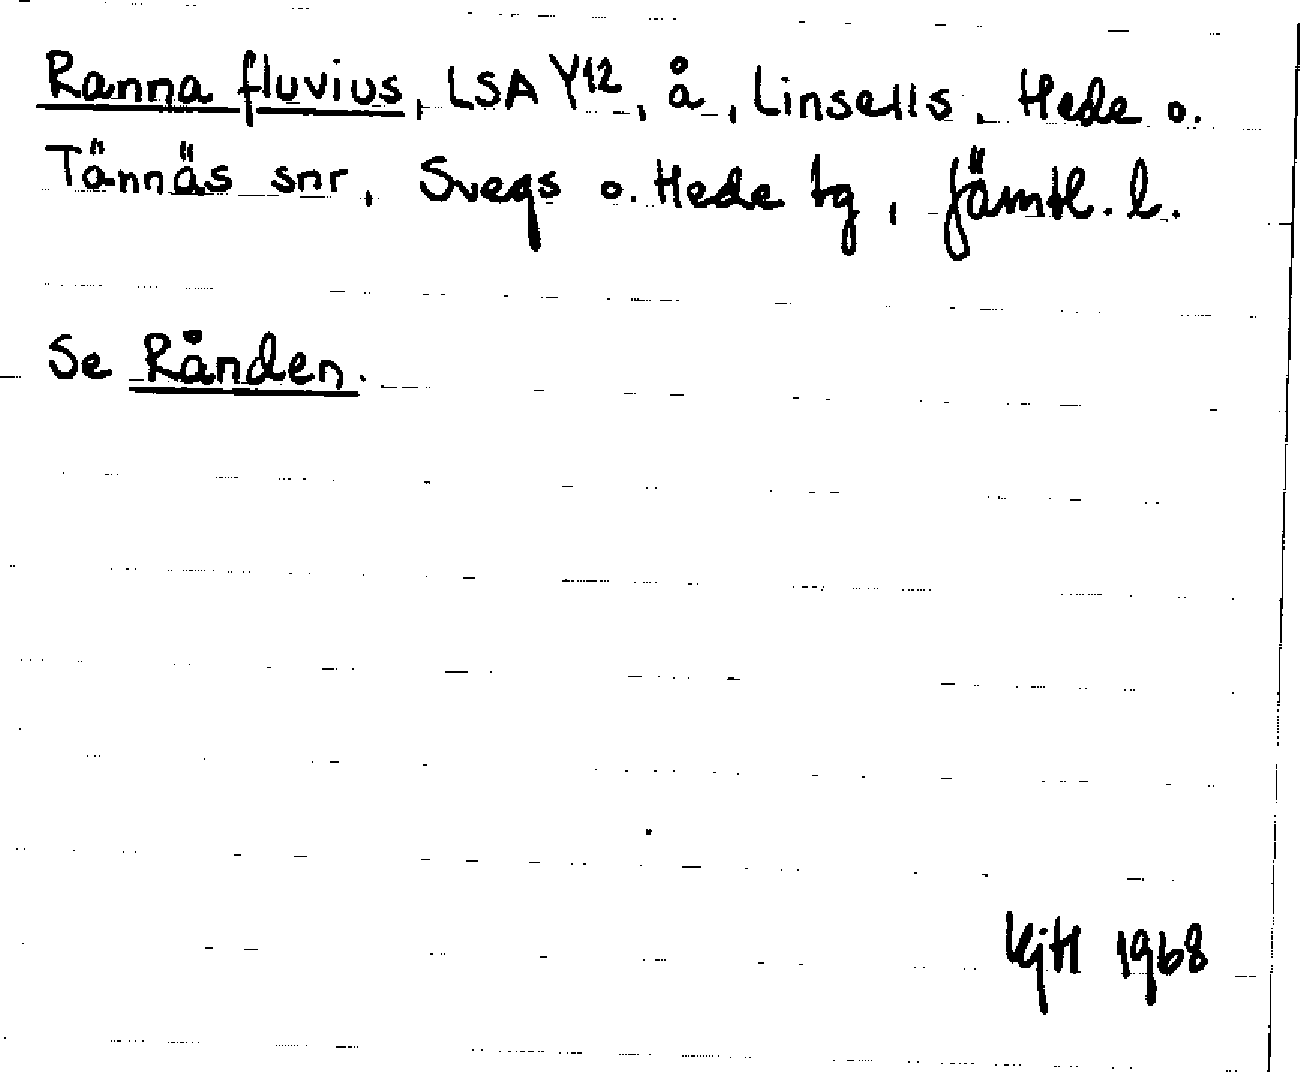 Ranna fluvius, LSA Y12, å, Linsells, Hede o.
Tännäs snr, Svegs o. Hede tg, Jämtl. l.
Se Rånden.
KjH 1968